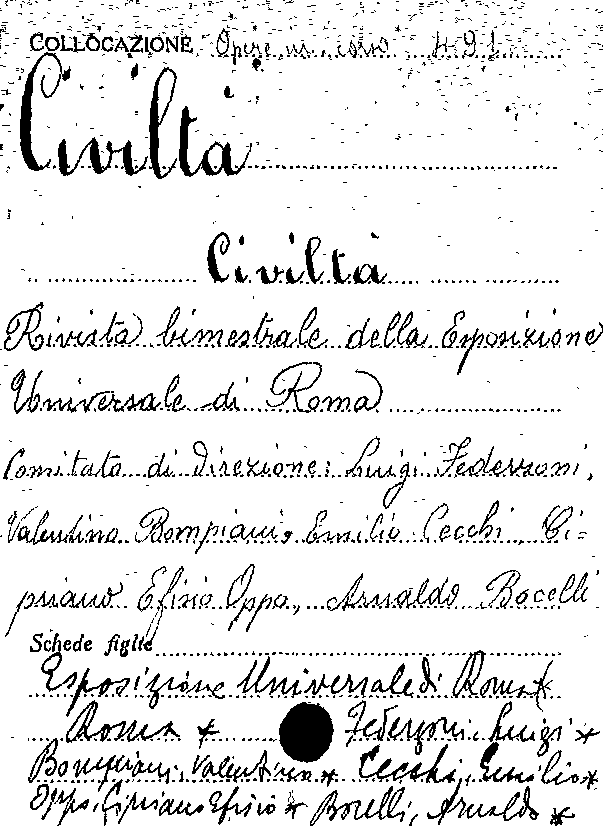 COLLOCAZIONE Opere in corso 491
Civiltà
Civiltà
Rivista bimestrale della Esposizione
Universale di Roma
Comitato di direzione: Luigi Federzoni,
Valentino Bompiani, Emilio Cecchi, Ci=
priano Efisio Oppo, Arnaldo Bocelli
Schede figlie
Esposizione Universale di Roma *
Roma * Federzoni, Luigi *
Bompiani, Valentino * Cecchi, Emilio *
Oppo, Cipriano Efisio * Bocelli, Arnaldo *